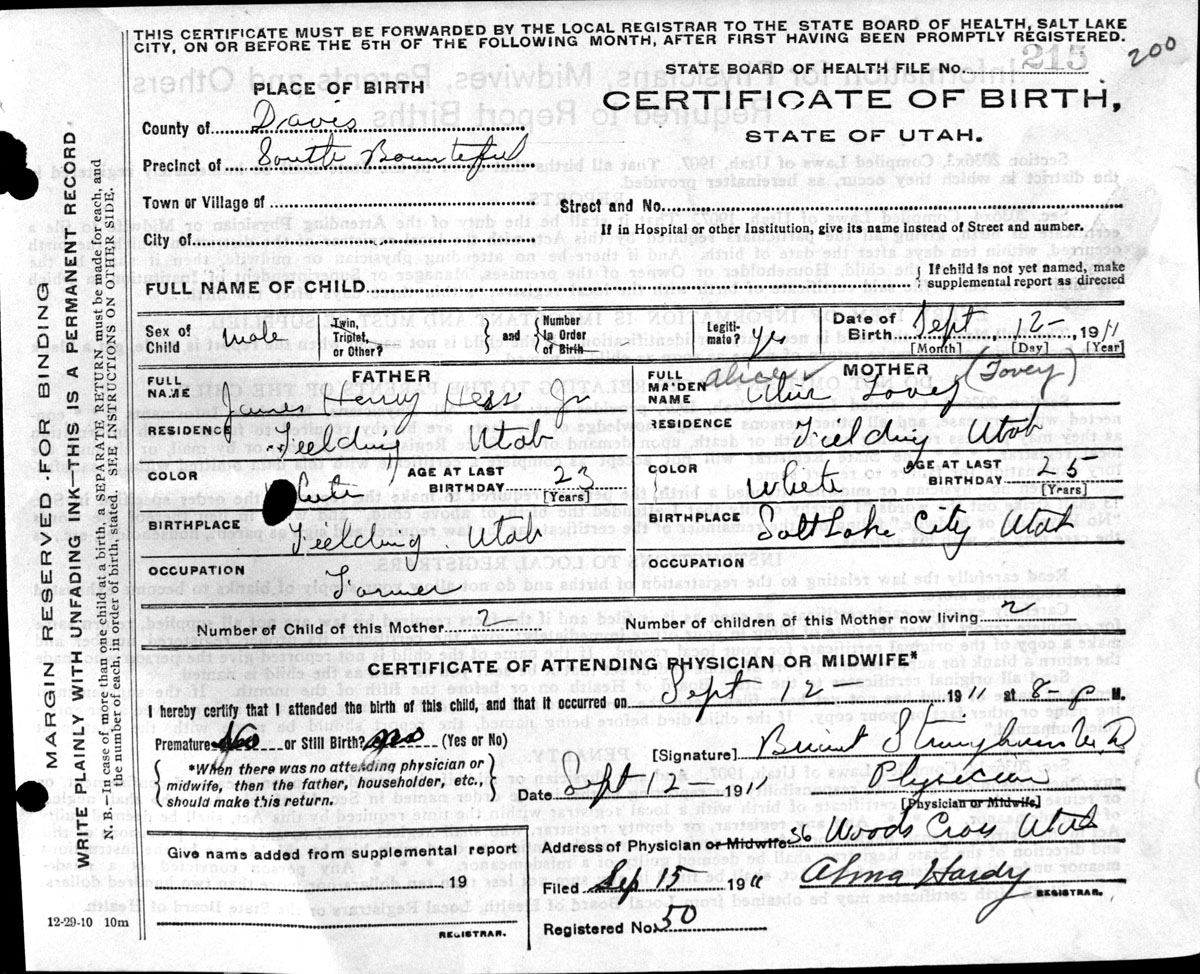 THIS CERTIFICATE MUST BE FORWARDED BY THE LOCAL REGISTRAR TO THE STATE BOARD OF HEALTH, SALT LAKE
CITY, ON OR BEFORE THE 5TH OF THE FOLLOWING MONTH, AFTER FIRST HAVING BEEN PROMPTLY REGISTERED.
200
STATE BOARD OF HEALTH FILE No. 215
PLACE OF BIRTH
CERTIFICATE OF BIRTH,
STATE OF UTAH.
County of Davis
Precinct of South Bountiful
Town or Village of
Street and No.
City of
If in Hospital or other Institution, give its name instead of Street and number.
FULL NAME OF CHILD
{ If child is not yet named, make
supplemental report as directed
Sex of Child male
Twin, Triplet, or Other? } and { Number in Order of Birth
Legitimate? yes
Date of Birth Sept 12 - 1911
[Month] [Day] [Year]
FATHER
FULL NAME James Henry Hess Jr
RESIDENCE Fielding Utah
COLOR White AGE AT LAST BIRTHDAY 23
[Years]
BIRTHPLACE Fielding Utah
OCCUPATION Farmer
MOTHER
Alice (Tovey)
FULL MAIDEN NAME Tovey
RESIDENCE Fielding Utah
COLOR White AGE AT LAST BIRTHDAY 25
[Years]
BIRTHPLACE Salt Lake City Utah
OCCUPATION
Number of Child of this Mother 2
Number of children of this Mother now living 2
CERTIFICATE OF ATTENDING PHYSICIAN OR MIDWIFE*
I hereby certify that I attended the birth of this child, and that it occurred on Sept 12 1911 at 8-P M.
Premature No or Still Birth? no (Yes or No)
{ *When there was no attending physician or
midwife, then the father, householder, etc.,
should make this return. }
[Signature] Briant Stringham M.D.
Date Sept 12 - 1911 Physician
[Physician or Midwife]
Address of Physician or Midwife Woods Cross Utah
Give name added from supplemental report
19
REGISTRAR.
Filed Sep 15 1911 Alma Hardy
REGISTRAR.
Registered No. 50
12-29-10 10m
MARGIN RESERVED FOR BINDING
WRITE PLAINLY WITH UNFADING INK-THIS IS A PERMANENT RECORD
N. B.—In case of more than one child at a birth, a SEPARATE RETURN must be made for each, and
the number of each, in order of birth, stated. SEE INSTRUCTIONS ON OTHER SIDE.